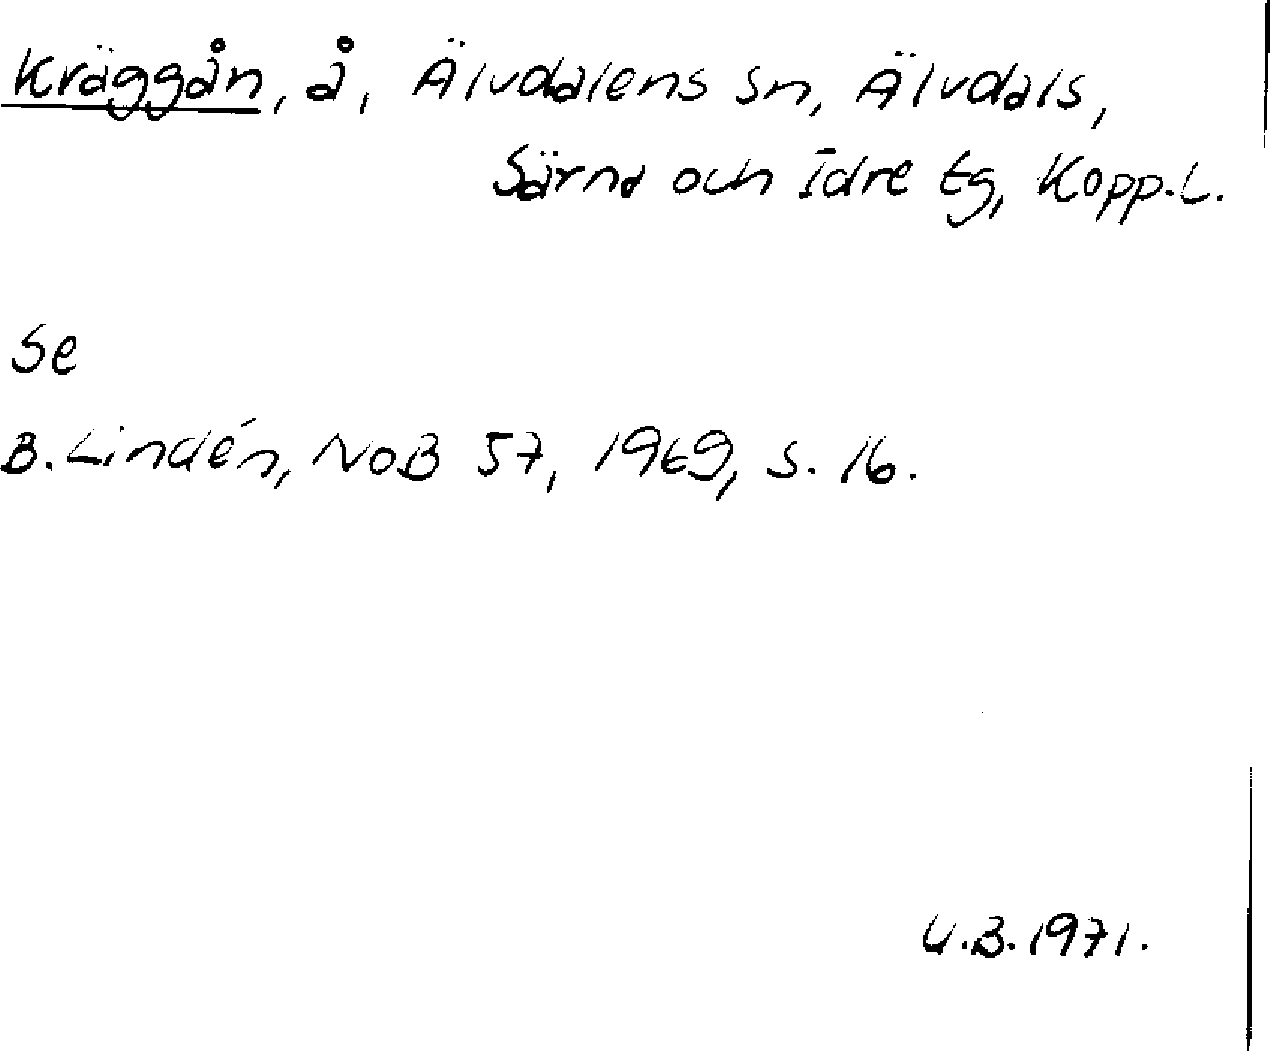 Kräggån, å, Älvdalens sn, Älvdals,
Särna och Idre tg, Kopp. L.
Se
B. Lindén, NoB 57, 1969, s. 16.
U.B. 1971.